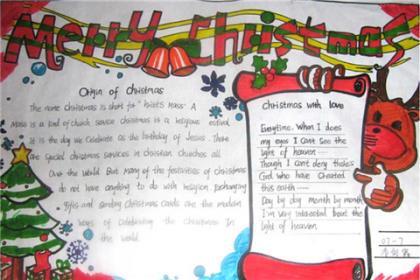 Merry Christmas
Origin of Christmas
The name Christmas is short for "hrist's Mass". A
Mass is a kind of church service christmas is a religious festival
it is the day we Celebrate as the birthday of Jesus. There
are special christmas services in christian churches all
Over the world But many of the festivities of christmas
do not have anything to do with religion Exchanging
gifts and sending Christmas cards are the modern
ways of Celebrating the Christmas In
the world.
Christmas with love
Everytime. When I does
my eyes I can't See the
light of heaven
Though I can't deny thale's
God who have Charted
this earth
Day by day month by month
I'm very interested bout the
light of heaven